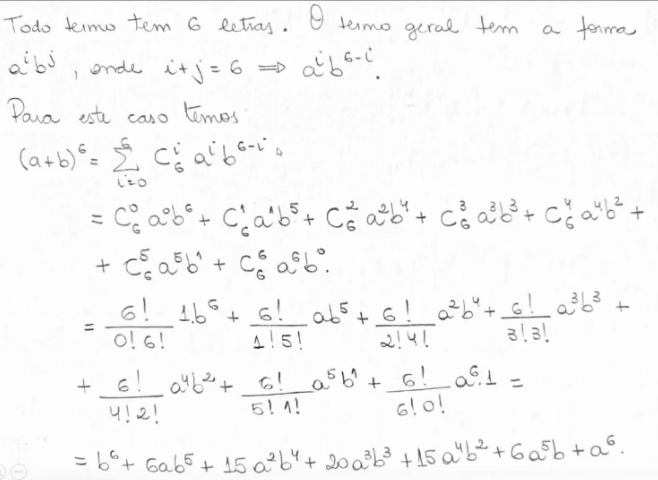 Todo termo tem 6 letras. O termo geral tem a forma
aⁱbʲ, onde i+j=6 ⟹ aⁱb⁶⁻ⁱ.
Para este caso temos
(a+b)⁶ = ∑_{i=0}^{6} C₆ⁱ aⁱb⁶⁻ⁱ.
= C₆⁰a⁰b⁶ + C₆¹a¹b⁵ + C₆²a²b⁴ + C₆³a³b³ + C₆⁴a⁴b² +
+ C₆⁵a⁵b¹ + C₆⁶a⁶b⁰.
= 6!/0!6! 1.b⁶ + 6!/1!5! ab⁵ + 6!/2!4! a²b⁴ + 6!/3!3! a³b³ +
+ 6!/4!2! a⁴b² + 6!/5!1! a⁵b¹ + 6!/6!0! a⁶.1 =
= b⁶ + 6ab⁵ + 15a²b⁴ + 20a³b³ + 15a⁴b² + 6a⁵b + a⁶.